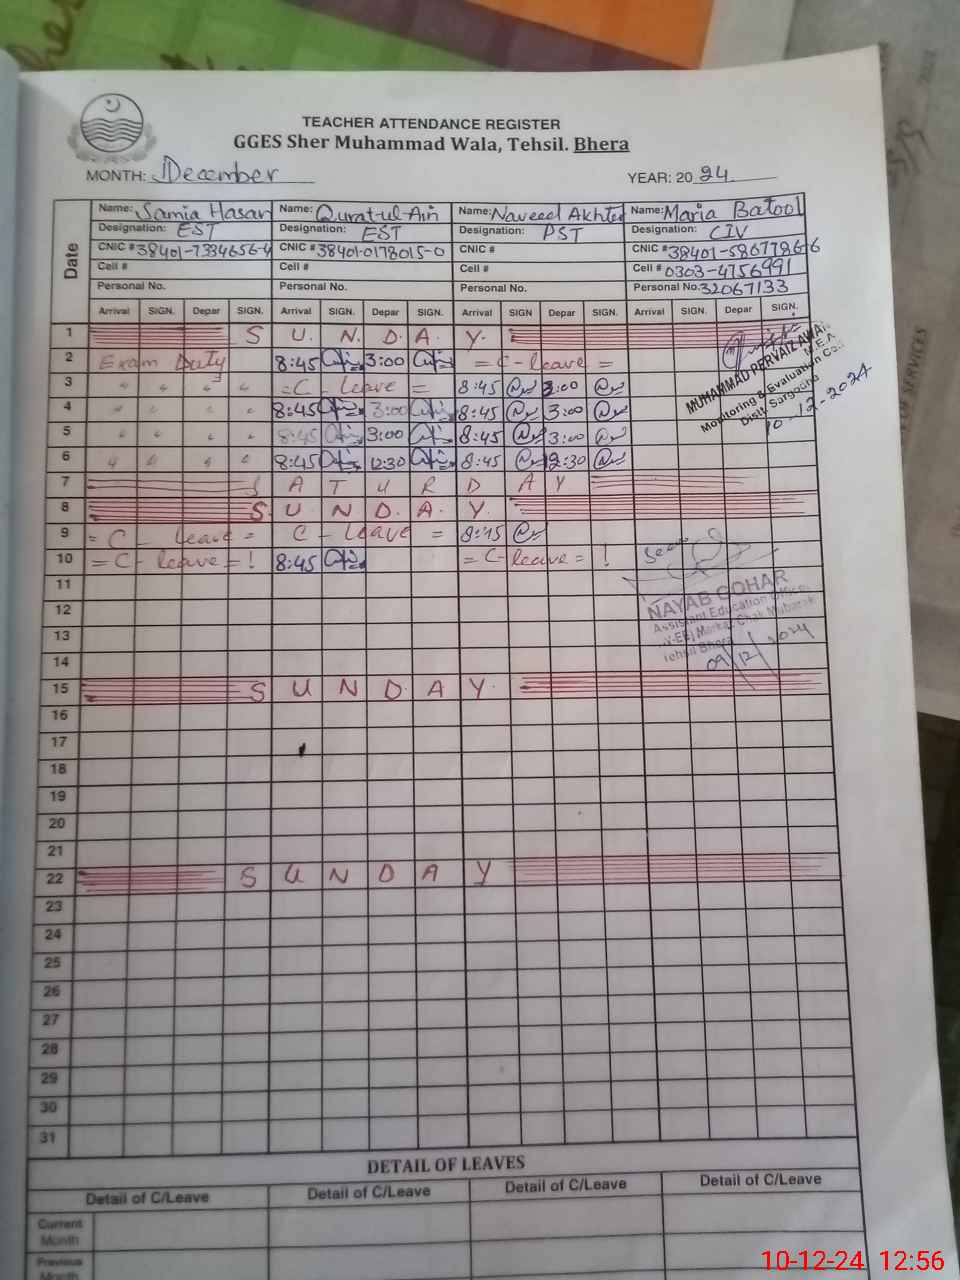 TEACHER ATTENDANCE REGISTER
GGES Sher Muhammad Wala, Tehsil. Bhera
MONTH: December YEAR: 2024
Date
Name: Samia Hasan Name: Qurat-ul-Ain Name: Naveed Akhter Name: Maria Batool
Designation: EST Designation: EST Designation: PST Designation: CIV
CNIC # 38401-7334656-4 CNIC # 38401-0178015-0 CNIC # CNIC #
Cell # Cell # Cell # Cell # 0303-4756991
Personal No. Personal No. Personal No. Personal No. 32067133
Arrival SIGN. Depar SIGN. Arrival SIGN. Depar SIGN. Arrival SIGN Depar SIGN. Arrival SIGN. Depar SIGN.
1 S U. N. D. A. Y.
2 Exam Duty 8:45 3:00 = C-leave =
3 " " " " = C - Leave = 8:45 3:00
4 " " " " 8:45 3:00 8:45 3:00
5 " " " " 8:45 3:00 8:45 3:00
6 " " " " 8:45 12:30 8:45 12:30
7 S A T U R D A Y
8 S. U. N. D. A. Y.
9 = C - leave = C - Leave = 8:45
10 = C - leave = ! 8:45 = C - leave = !
11
12
13
14
15 S U N D A Y.
16
17
18
19
20
21
22 S U N D A Y
23
24
25
26
27
28
29
30
31
MUHAMMAD PERVAIZ AWAN
M.E.A
Monitoring & Evaluation
Distt. Sargodha
10-12-2024
Seen
NAYAB GOHAR
Assistant Education Officer
Markaz Chak Mubarak
Tehsil Bhera
09/12/2024
DETAIL OF LEAVES
Detail of C/Leave Detail of C/Leave Detail of C/Leave Detail of C/Leave
Current
Month
Previous
Month
SERVICES
10-12-24 12:56